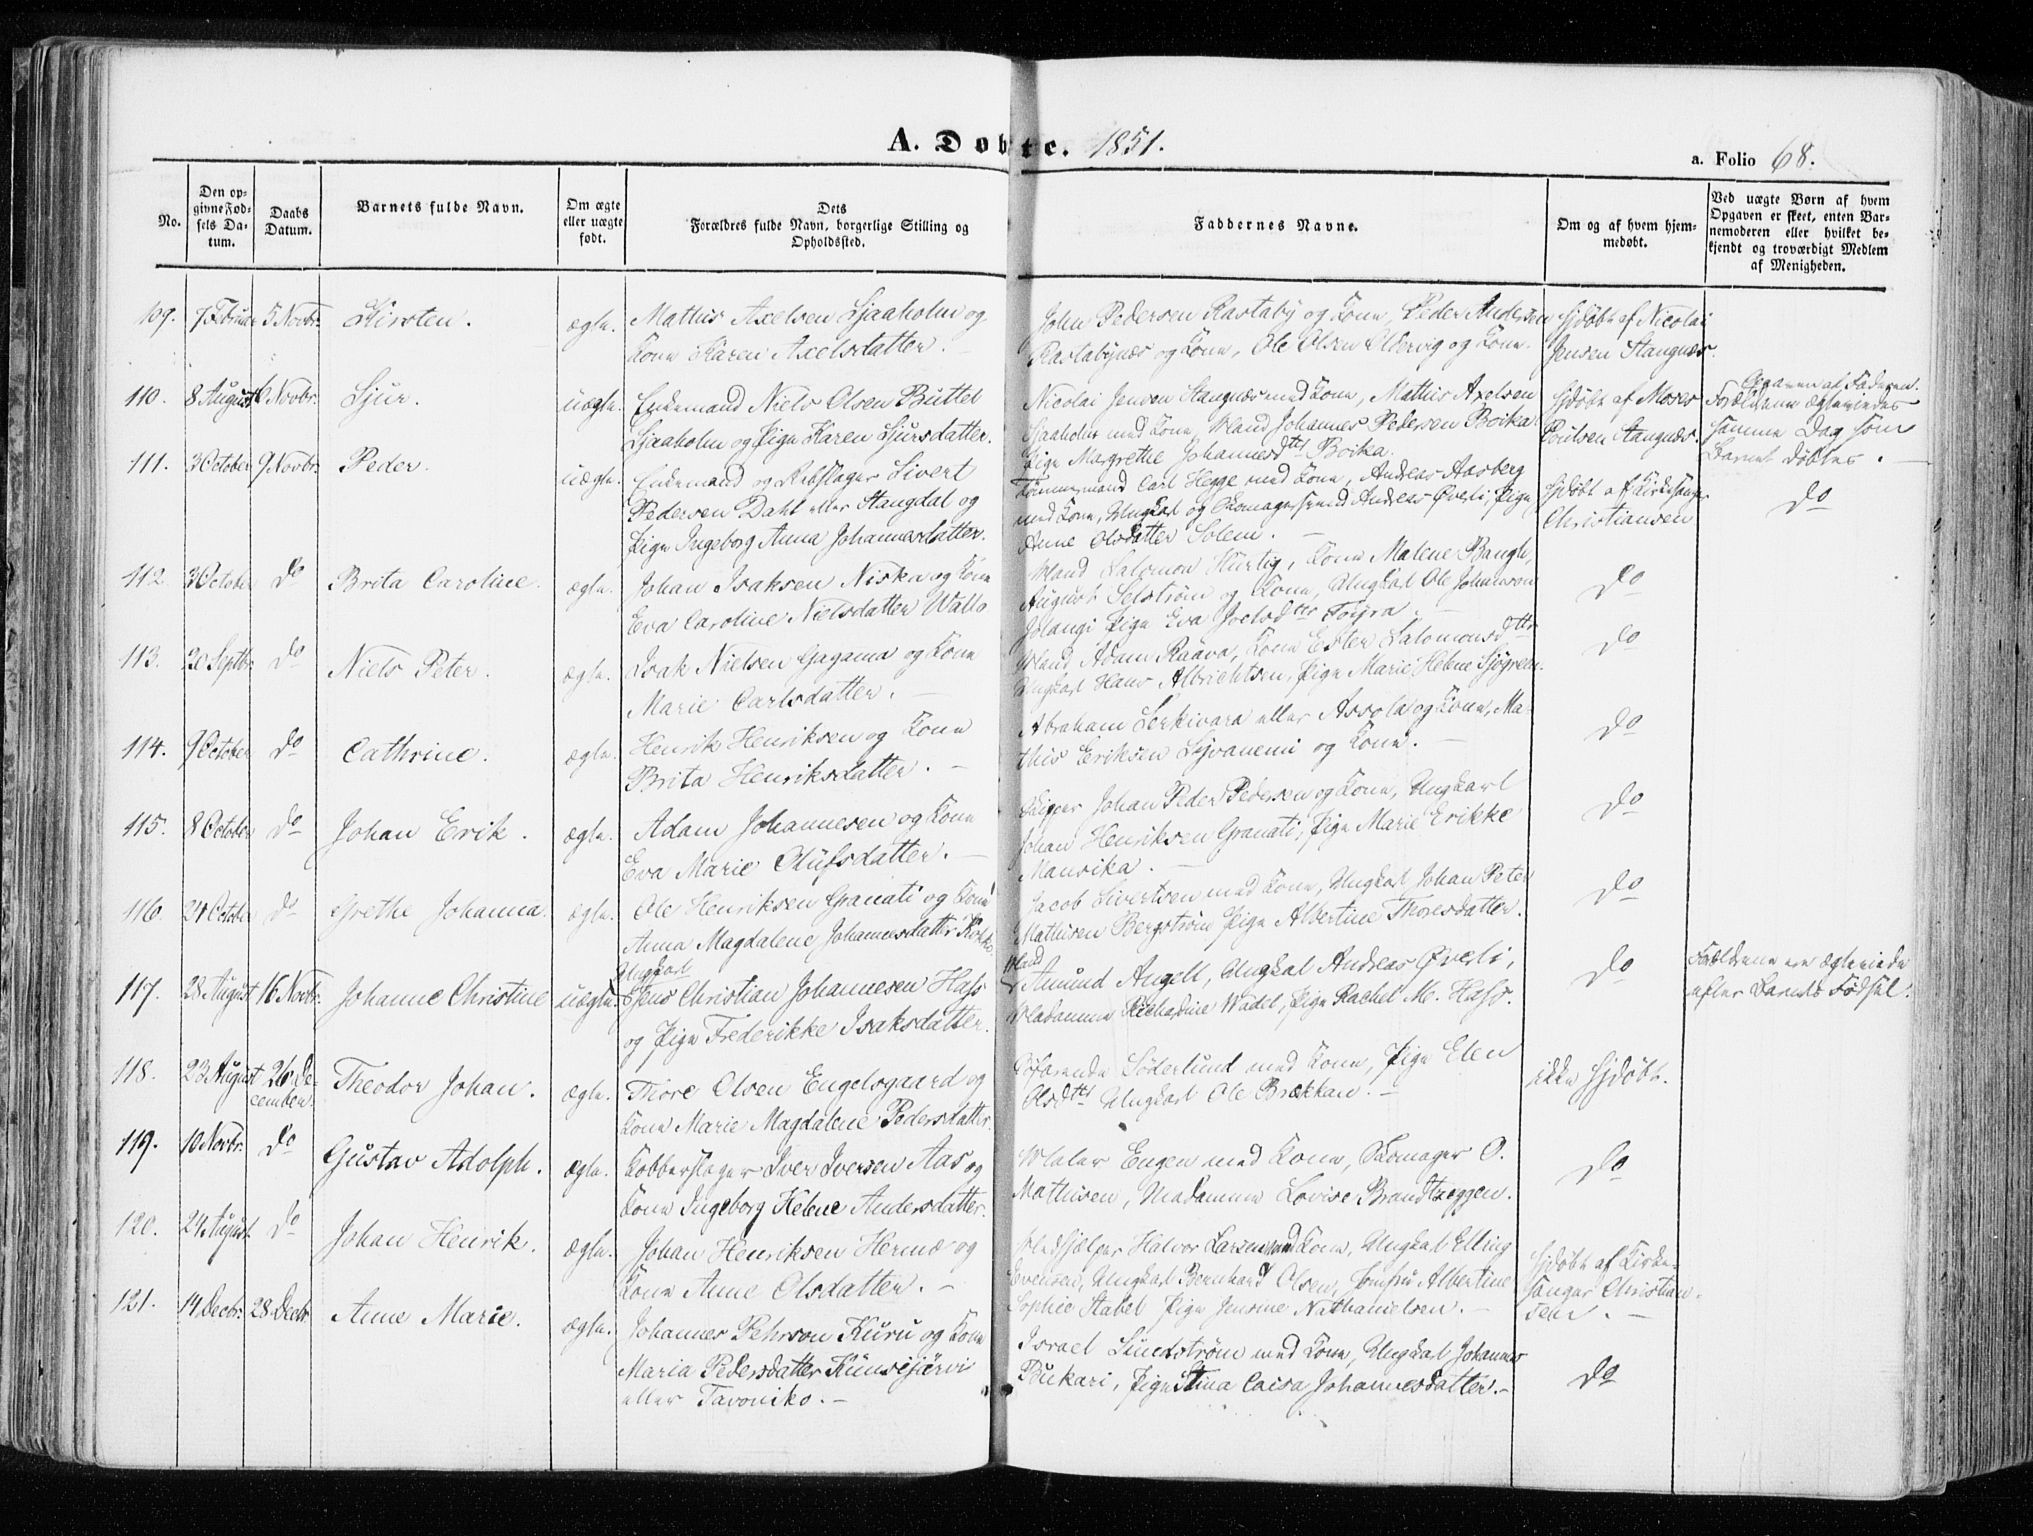 A. Døbte. 1851.
a. Folio 68.
No.
Den op-
givne Fød-
sels Da-
tum.
Daabs
Datum.
Barnets fulde Navn.
Om ægte
eller uægte
født.
Dets
Forældres fulde Navn, borgerlige Stilling og
Opholdssted.
Faddernes Navne.
Om og af hvem hjem-
medøbt.
Ved uægte Børn af hvem
Opgaven er skeet, enten Bar-
nemoderen eller hvilket be-
kjendt og troværdigt Medlem
af Menigheden.
109. 7 Februar 5 Novbr. Kirsten. ægte. Mathis Axelsen Sjaaholm og
Kone Karen Axelsdatter.
John Pedersen Rastaby og Kone, Peder Andersen
Rastabynæs og Kone, Ole Olsen Oldervig og Kone.
Hjdøbt af Nicolai
Jensen Stangnæs.
110. 8 August 6 Novbr. Sjur. uægte. Enkemand Niels Olsen Buttel
Sjaaholm og Pige Karen Sjursdatter.
Nicolai Jensen Stangnæs med Kone, Mathis Axelsen
Sjaaholm med Kone, Mand Johannes Pedersen Boika
Pige Margrethe Johannesdttr Boika.
Hjdøbt af Moses
Poulsen Stangnæs.
Opgaven af Faderen.
Forældrene ægteviedes
samme Dag som
Barnet døbtes.
111. 3 October 9 Novbr. Peder. uægte. Enkemand og Rebslager Sivert
Pedersen Dahl eller Stangdal og
Pige Ingeborg Anna Johannesdatter.
Tømmermand Carl Hegge med Kone, Andreas Aasberg
med Kone, Ungkarl og Skomagersvend Andreas Øverli, Pige
Anne Olsdatter Solem.
Hjdøbt af Kirkesanger
Christiansen
Do
112. 3 October Do Brita Caroline. ægte. Johan Isaksen Niska og Kone
Eva Caroline Nielsdatter Wallo
Mand Salomon Hurtig, Kone Malene Bangh,
August Selstrøm og Kone, Ungkarl Ole Johanson
Jolangi Pige Eva Joelsdtter Tøyra.
Do
113. 20 Septbr. Do Niels Peter. ægte. Isak Nielsen Gagama og Kone
Marie Carlsdatter.
Mand Adam Raava, Kone Ester Salomonsdttr
Ungkarl Hans Albrichtsen, Pige Marie Helene Sjøgreen.
Do
114. 9 October Do Cathrine. ægte. Henrik Henriksen og Kone
Brita Henriksdatter.
Abraham Serkivara eller Assola og Kone, Ma-
this Eriksen Syvanemi og Kone.
Do
115. 8 October Do Johan Erik. ægte. Adam Johannesen og Kone
Eva Marie Olufsdatter.
Skipper Johan Peder Pedersen og Kone, Ungkarl
Johan Henriksen Granati, Pige Marie Erikke
Mansika.
Do
116. 24 October Do Grethe Johanna. ægte. Ole Henriksen Granati og Kone
Anna Magdalene Johannesdatter Kokko.
Jacob Sivertsen med Kone, Ungkarl Johan Peter
Mathisen Bergstrøm Pige Albertine Thoresdatter.
Do
117. 28 August 16 Novbr. Johanne Christine uægte. Ungkarl
Jens Christian Johannesen Hass
og Pige Frederikke Isaksdatter.
Mand
Amund Angell, Ungkal Andreas Øverli,
Madamme Richardine Wadel, Pige Rachel M. Hass.
Do
Forældrene ere ægteviede
efter Barnets Fødsel.
118. 23 August 26 De-
cember. Theodor Johan. ægte. Thore Olsen Engelsgaard og
Kone Marie Magdalene Pedersdatter.
Søfarende Söderlund med Kone, Pige Elen
Olsdttr Ungkarl Ole Brækkan.
ikke Hjdøbt.
119. 10 Novbr. Do Gustav Adolph. ægte. Kobberslager Iver Iversen Aas og
Kone Ingeborg Helene Andersdatter.
Maler Engen med Kone, Skomager O.
Mathisen, Madamme Lovise Brandtzeggen.
Do
120. 24 August. Do Johan Henrik. ægte. Johan Henriksen Hermæ og
Kone Anne Olsdatter.
Medhjælper Halvor Larsen med Kone, Ungkarl Elling
Evensen, Ungkarl Bernhard Olsen, Jomfru Albertine
Sophie Stabel Pige Jensine Nathanielsen.
Hjdøbt af Kirke-
sanger Christian-
sen.
121. 14 Decbr. 28 Decbr. Anne Marie. ægte. Johannes Pehrson Kuru og Kone
Maria Pedersdatter Kunsejärvi
eller Tavoniko.
Israel Sundstrøm med Kone, Ungkal Johannes
Pukari, Pige Stina Caisa Johannesdatter.
Do